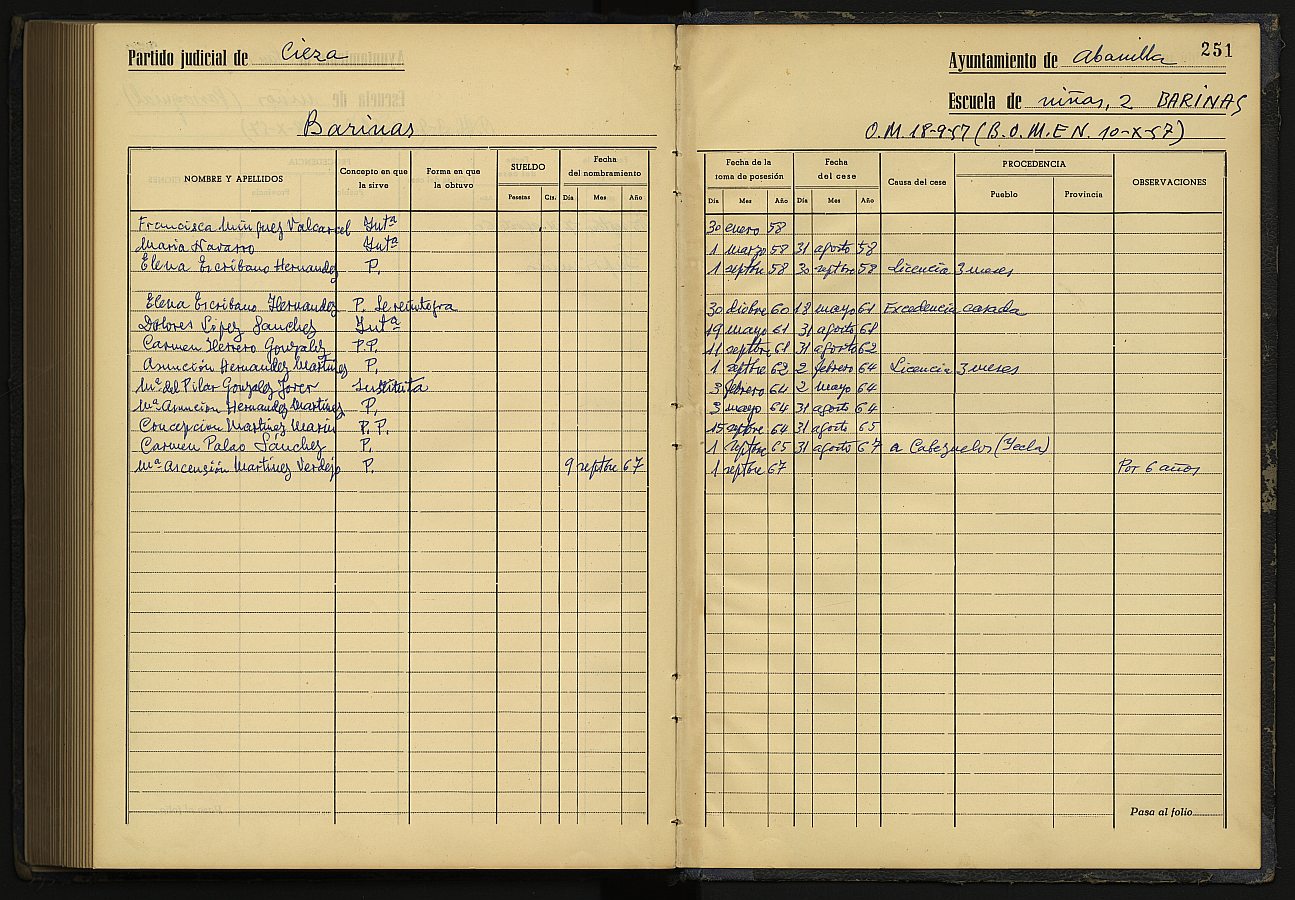 Partido judicial de Cieza
Barinas
NOMBRE Y APELLIDOS
Concepto en que la sirve
Forma en que la obtuvo
SUELDO
Pesetas Cts.
Fecha del nombramiento
Día Mes Año
Francisca Mínguez Valcarcel Intª
Maria Navarro Intª
Elena Escribano Hernandez P.
Elena Escribano Hernandez P. Se reintegra
Dolores López Sanchez Intª
Carmen Herrero Gonzalez P.P.
Asunción Hernandez Martinez P.
Mª del Pilar Gonzalez Sustituta
Mª Asuncion Hernandez Martinez P.
Concepcion Martinez Marin P. P.
Carmen Palao Sánchez P.
Mª Ascensión Martínez Verdejo P. 9 septbre 67
251
Ayuntamiento de Abanilla
Escuela de niñas, 2 BARINAS
O.M. 18-9-57 (B.O.M.E.N. 10-X-57)
Fecha de la toma de posesión
Día Mes Año
Fecha del cese
Día Mes Año
Causa del cese
PROCEDENCIA
Pueblo Provincia
OBSERVACIONES
30 enero 58
1 marzo 58 31 agosto 58
1 septbre 58 30 septbre 58 Licencia 3 meses
30 dicbre 60 18 mayo 61 Excedencia casada
19 mayo 61 31 agosto 61
11 septbre 61 31 agosto 62
1 septbre 62 2 febrero 64 Licencia 3 meses
3 febrero 64 2 mayo 64
3 mayo 64 31 agosto 64
15 septbre 64 31 agosto 65
1 septbre 65 31 agosto 67 a Cabezuelos (Yecla)
1 septbre 67 Por 6 años
Pasa al folio